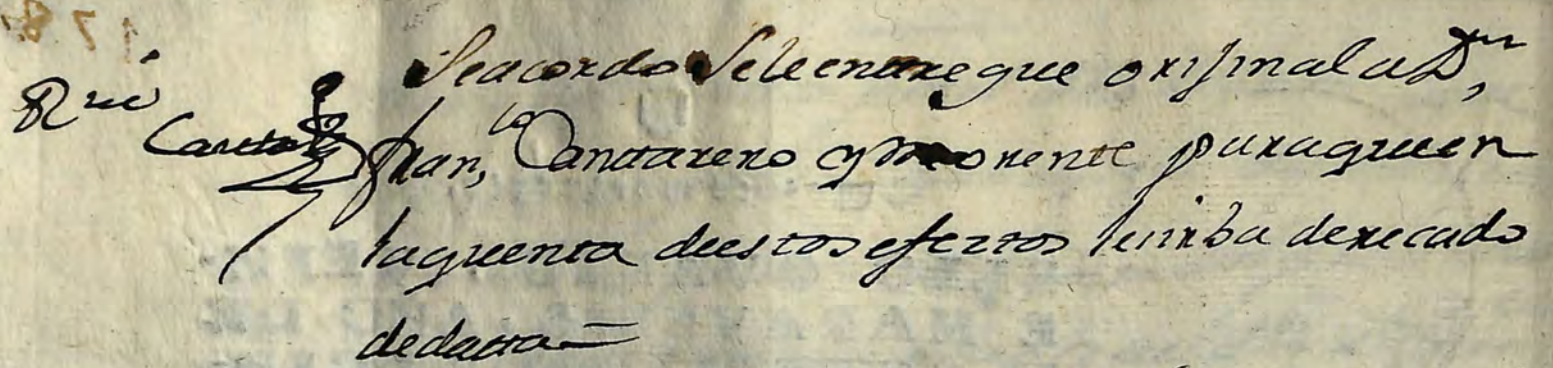 Seacordo Seleentregue orijinal a Dn,
fran,co Cantarero y Monente paraqueen
laquenta deestos efectos lesirba derecado
dedatta=